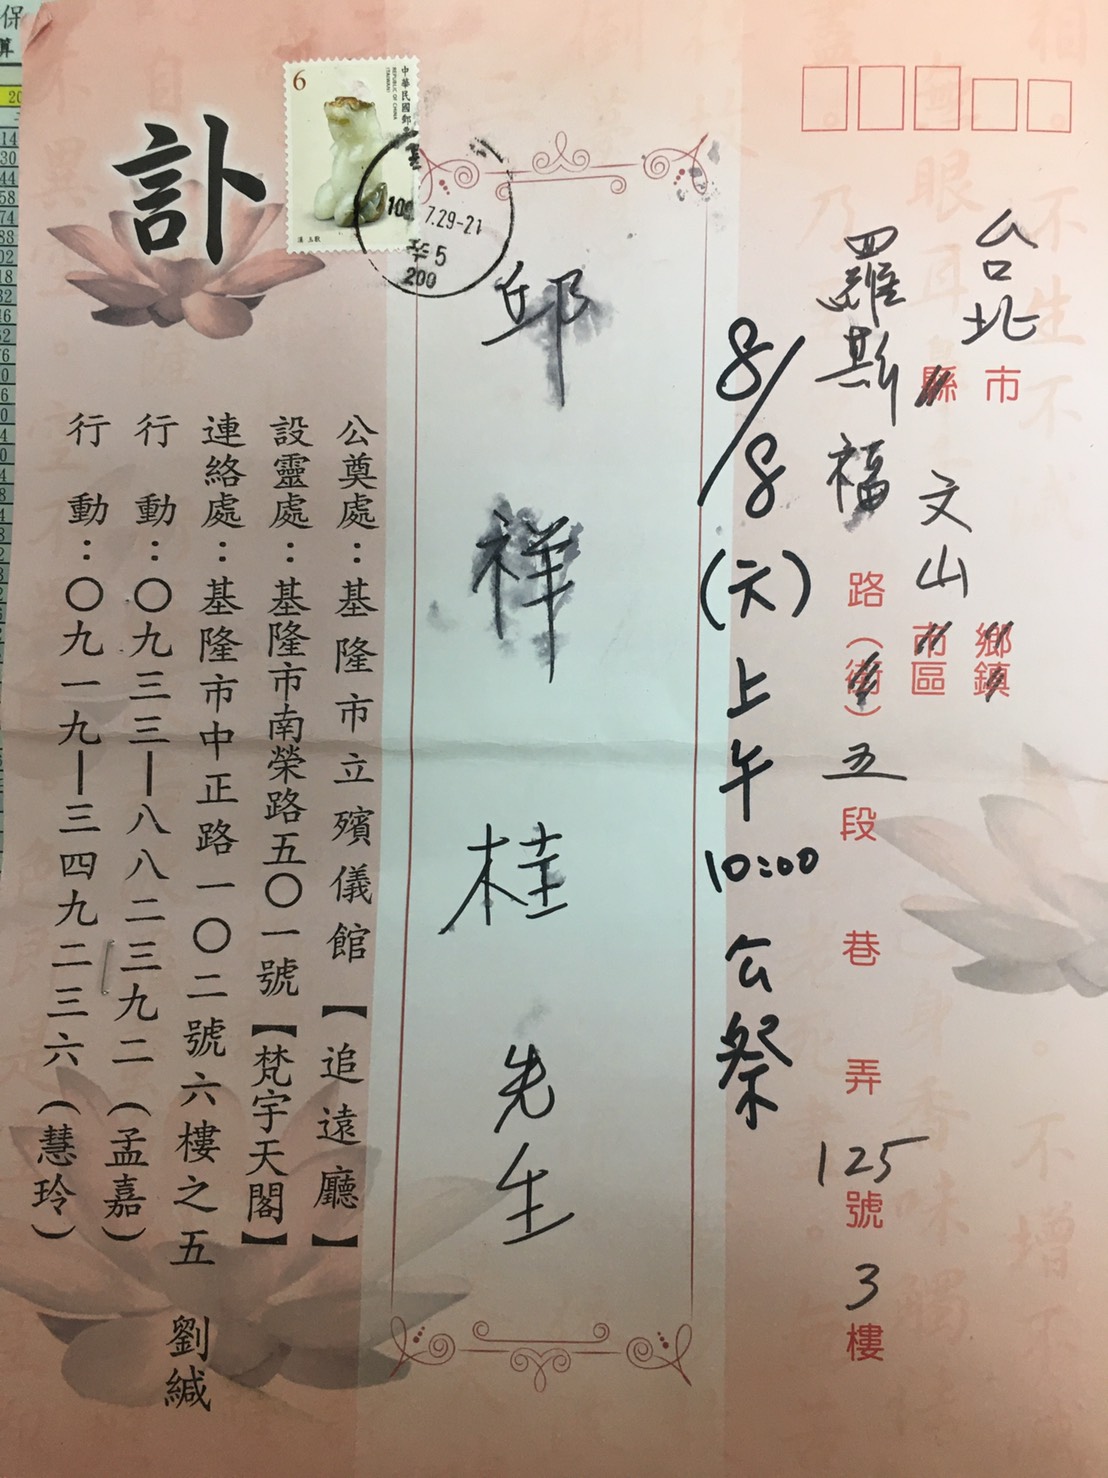 台北市縣 文山鄉鎮市區
羅斯福路(街)五段巷弄125號3樓
8/8(六)上午10:00公祭
邱祥桂先生
6
中華民國郵票
REPUBLIC OF CHINA (TAIWAN)
漢 玉熊
7.29-21
200
訃
公奠處：基隆市立殯儀館【追遠廳】
設靈處：基隆市南榮路五〇一號【梵宇天閣】
連絡處：基隆市中正路一〇二號六樓之五 劉緘
行動：〇九三三—八八二三九二(孟嘉)
行動：〇九一九—三四九二三六(慧玲)